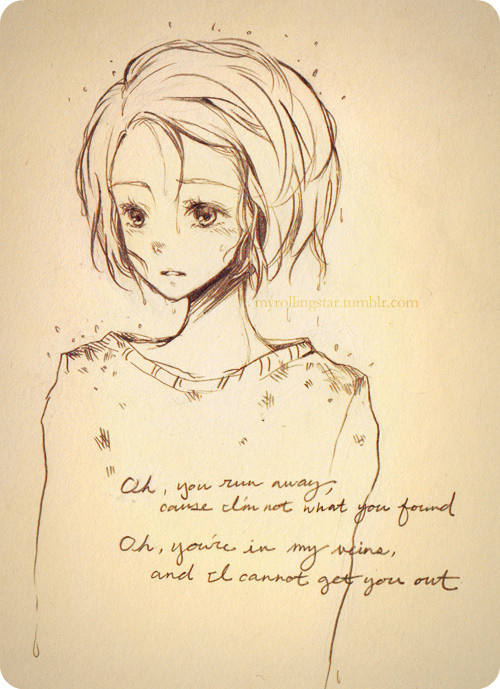 myrollingstar.tumblr.com
Oh, you run away,
cause I'm not what you found
Oh, you're in my veins,
and I cannot get you out